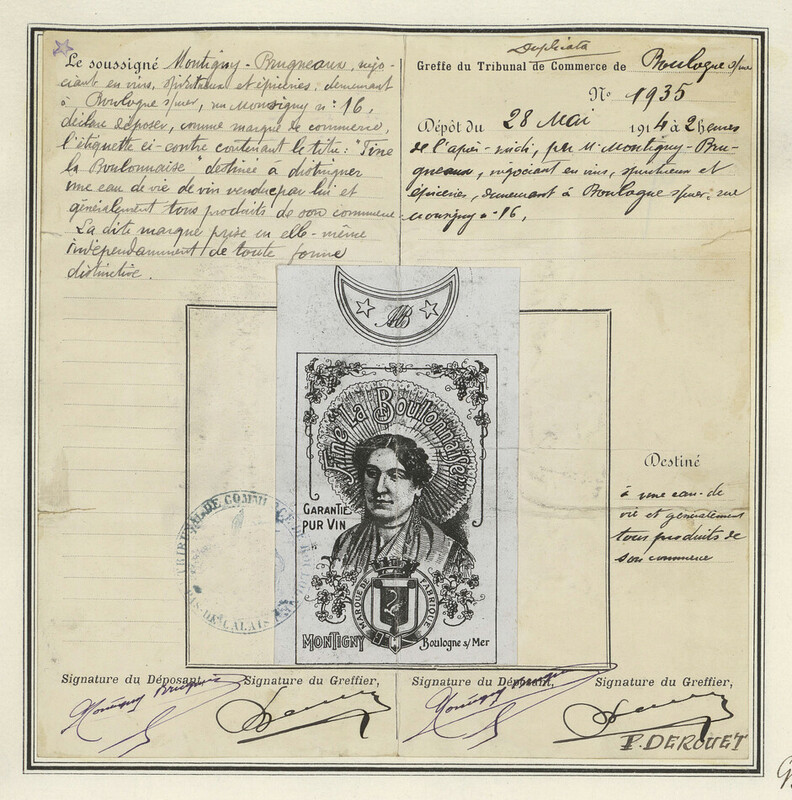 Le soussigné Montigny-Brugneaux, négo-
ciant en vins, spiritueux et épiceries, demeurant
à Boulogne s/mer, rue Monsigny n: 16,
déclare déposer, comme marque de commerce,
l'étiquette ci-contre contenant le titre: "Fine
la Boulonnaise" destinée à distinguer
une eau de vie de vin vendue par lui et
généralement tous produits de son commerce
La dite marque prise en elle-même
indépendamment de toute forme
distinctive.
Duplicata
Greffe du Tribunal de Commerce de Boulogne s/mer
No 1935
Dépôt du 28 Mai 1914 à 2 heures
de l'après-midi, par M. Montigny-Bru-
gneaux, négociant en vins, spiritueux et
épiceries, demeurant à Boulogne s/mer, rue
Monsigny n: 16,
MB
Fine La Boulonnaise
GARANTIE
PUR VIN
MARQUE DE FABRIQUE
M
MONTIGNY Boulogne s/Mer
TRIBUNAL DE COMMERCE DE BOULOGNE
PAS-DE-CALAIS
Destiné
à une eau-de
vie et généralement
tous produits de
son commerce
Signature du Déposant, Signature du Greffier,
Montigny Brugneaux
Signature du Déposant, Signature du Greffier,
Montigny Brugneaux
P. DEROUET